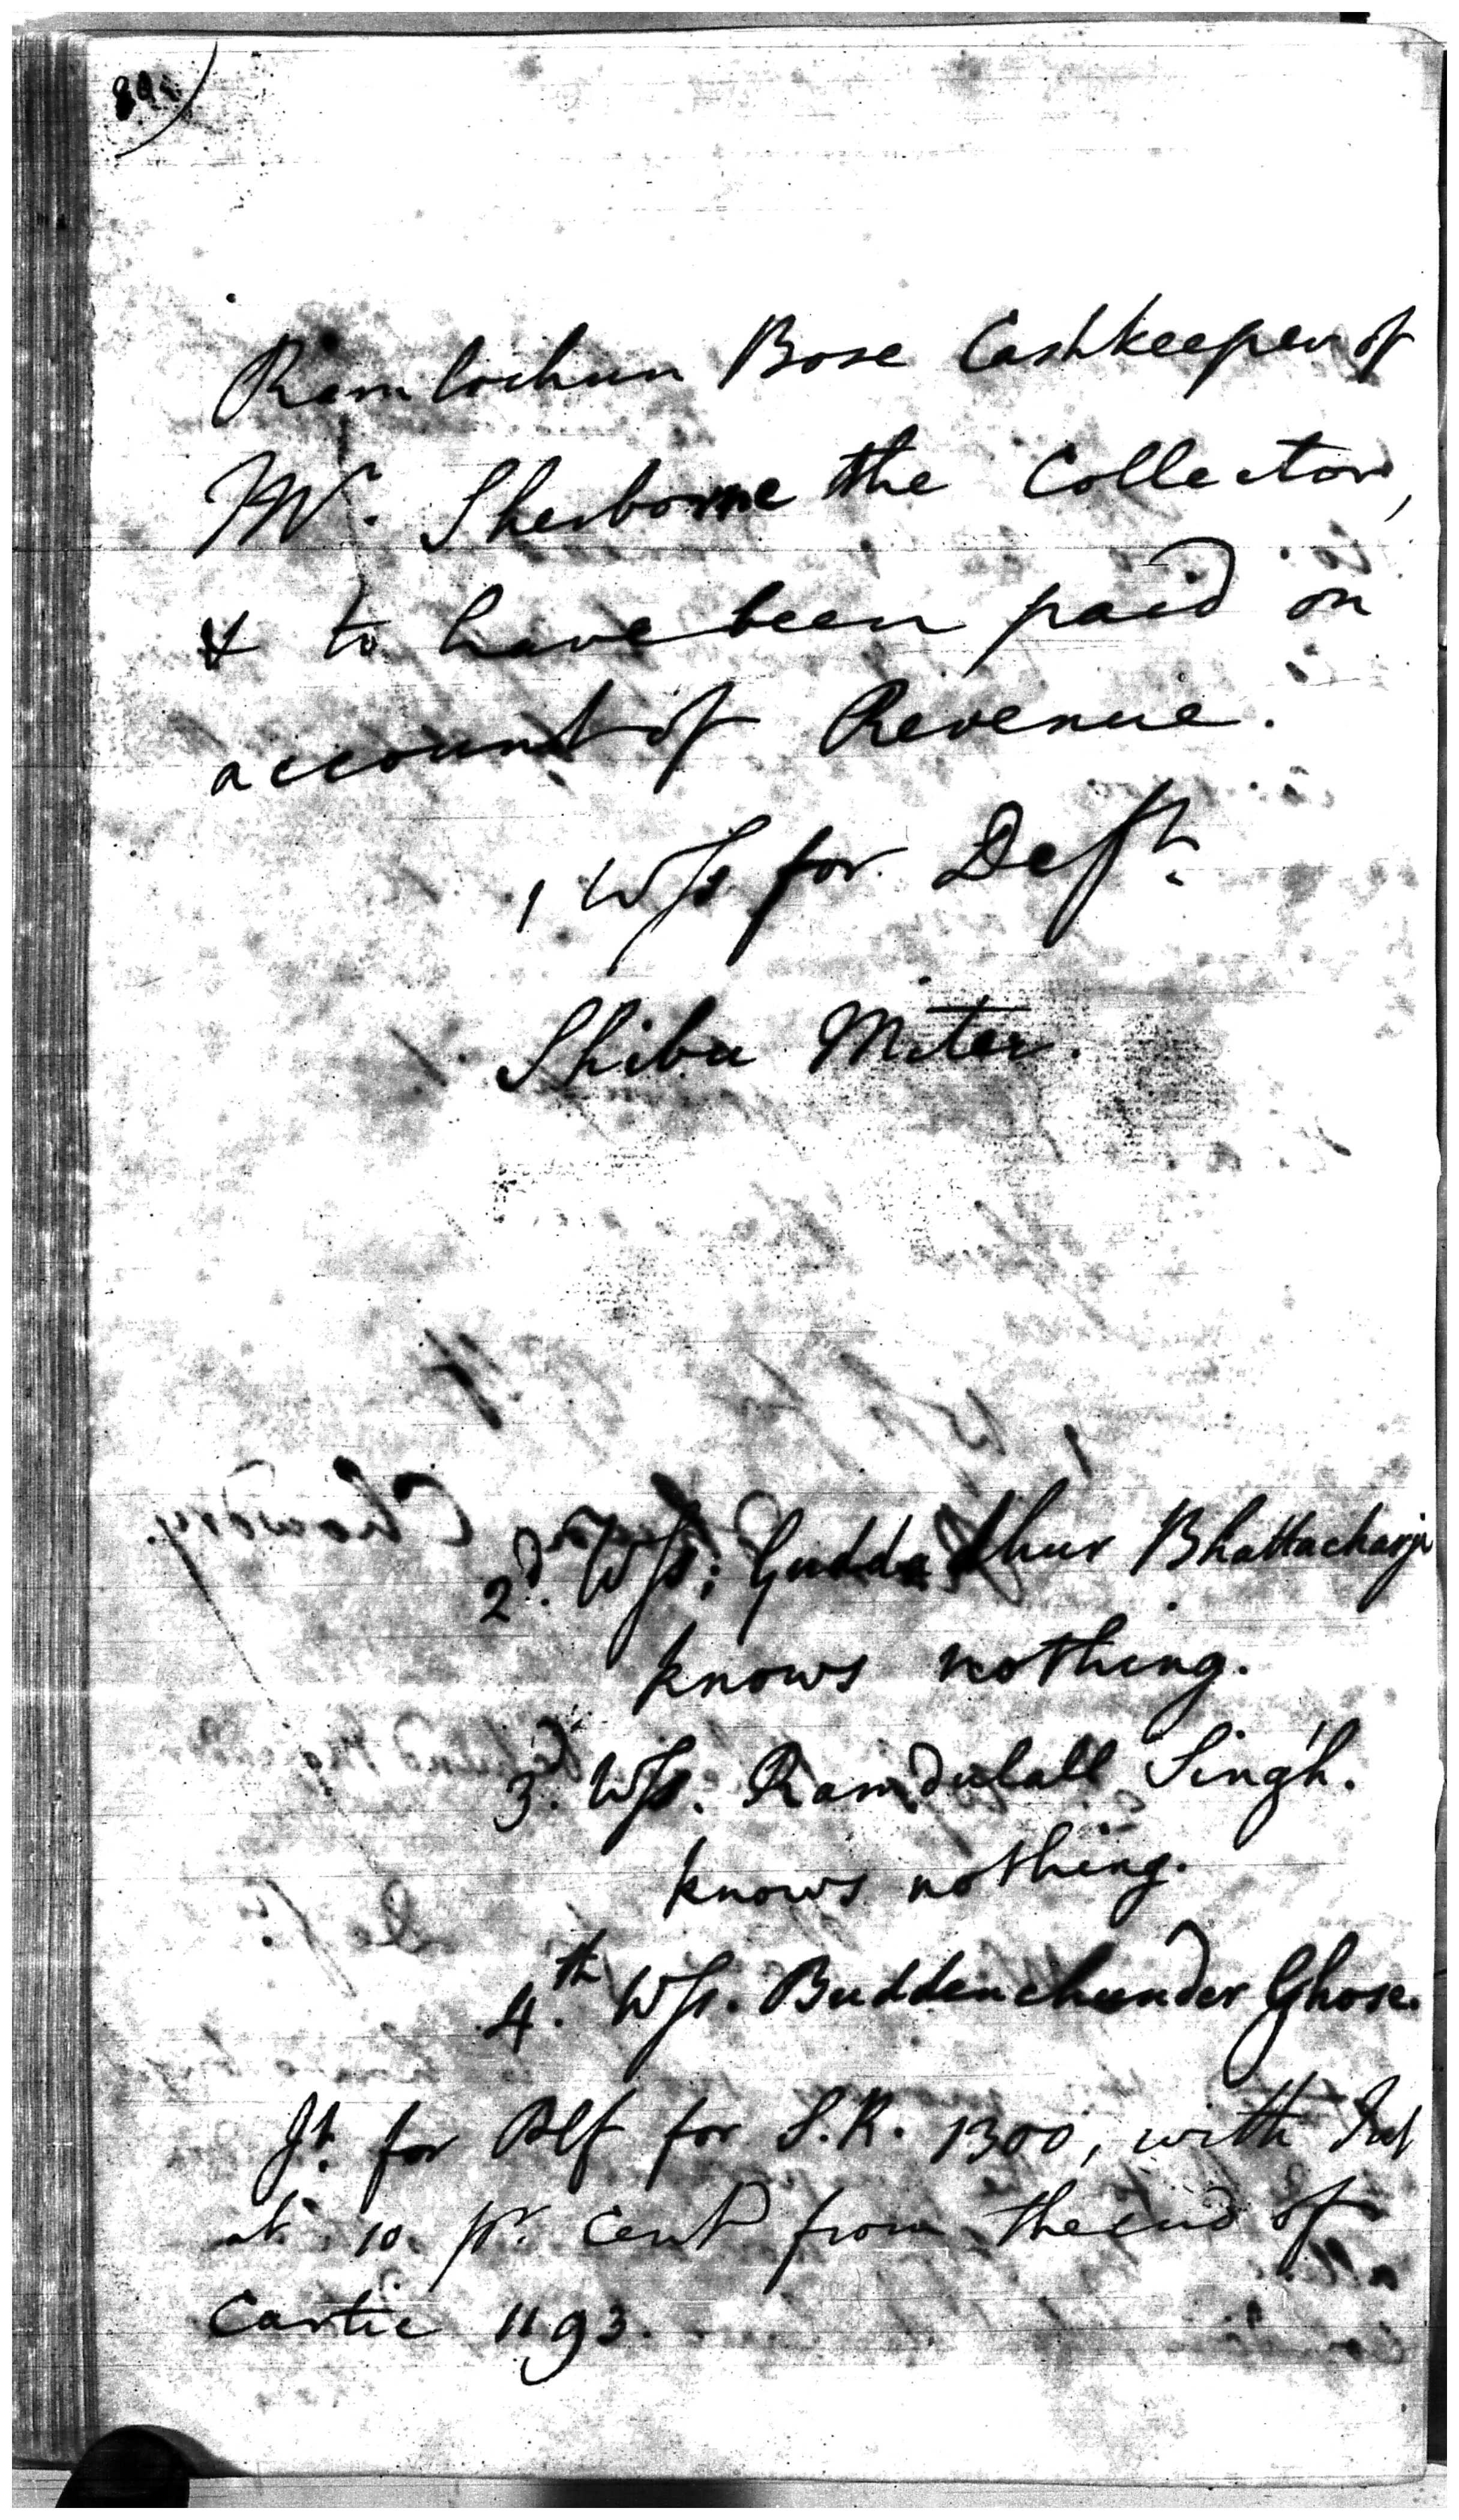 Ramlochun Bose Cashkeeper of
Mr. Sherborne the Collector,
& to have been paid on
account of Revenue.
1 Wss for Deft.
Shibu Miter.
2d. Wss; Guddadhur Bhattacharje
knows nothing.
3d. Wss. Ramdulall Singh.
knows nothing.
4th. Wss. Buddenchunder Ghose.
Jt. for Plf for S.R. 1300, with Int
at 10 pr. Cent from the end of
Cartic 1193.